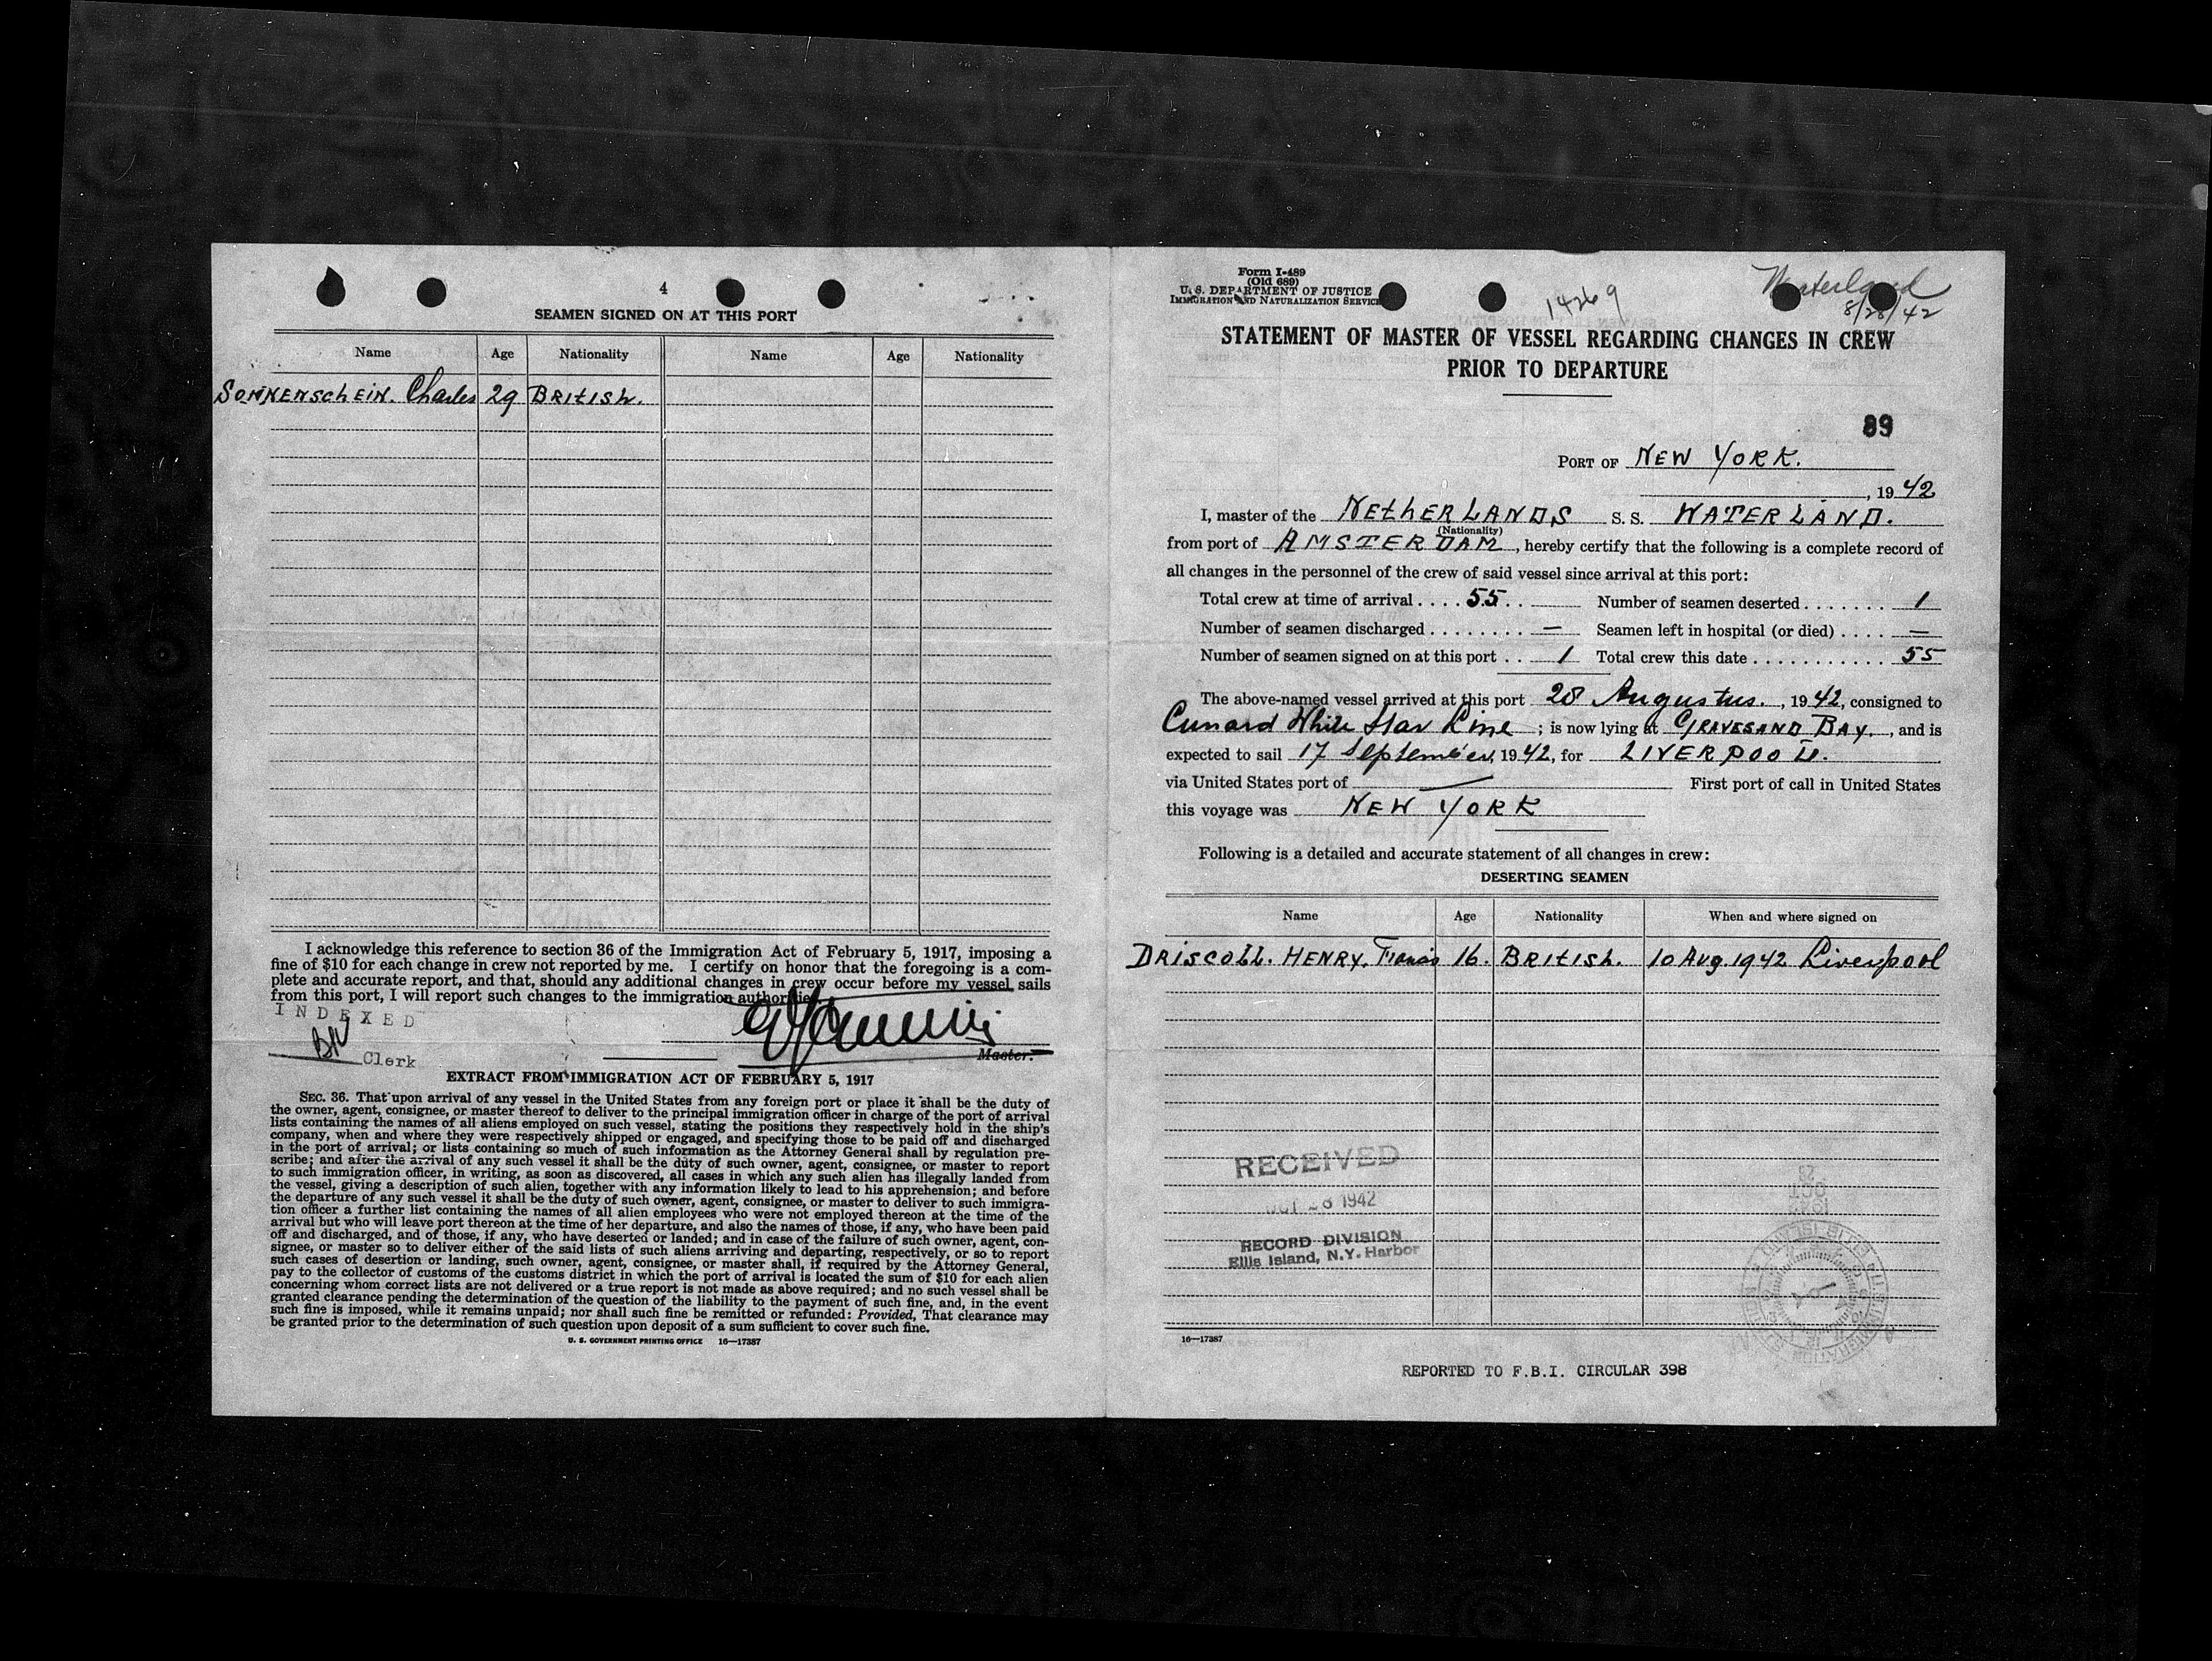 4
SEAMEN SIGNED ON AT THIS PORT
Name Age Nationality Name Age Nationality
SONNENSCHEIN. Charles 29 BRITISH.
I acknowledge this reference to section 36 of the Immigration Act of February 5, 1917, imposing a
fine of $10 for each change in crew not reported by me. I certify on honor that the foregoing is a com-
plete and accurate report, and that, should any additional changes in crew occur before my vessel sails
from this port, I will report such changes to the immigration authorities.
INDEXED
Clerk
Master.
EXTRACT FROM IMMIGRATION ACT OF FEBRUARY 5, 1917
SEC. 36. That upon arrival of any vessel in the United States from any foreign port or place it shall be the duty of
the owner, agent, consignee, or master thereof to deliver to the principal immigration officer in charge of the port of arrival
lists containing the names of all aliens employed on such vessel, stating the positions they respectively hold in the ship's
company, when and where they were respectively shipped or engaged, and specifying those to be paid off and discharged
in the port of arrival; or lists containing so much of such information as the Attorney General shall by regulation pre-
scribe; and after the arrival of any such vessel it shall be the duty of such owner, agent, consignee, or master to report
to such immigration officer, in writing, as soon as discovered, all cases in which any such alien has illegally landed from
the vessel, giving a description of such alien, together with any information likely to lead to his apprehension; and before
the departure of any such vessel it shall be the duty of such owner, agent, consignee, or master to deliver to such immigra-
tion officer a further list containing the names of all alien employees who were not employed thereon at the time of the
arrival but who will leave port thereon at the time of her departure, and also the names of those, if any, who have been paid
off and discharged, and of those, if any, who have deserted or landed; and in case of the failure of such owner, agent, con-
signee, or master so to deliver either of the said lists of such aliens arriving and departing, respectively, or so to report
such cases of desertion or landing, such owner, agent, consignee, or master shall, if required by the Attorney General,
pay to the collector of customs of the customs district in which the port of arrival is located the sum of $10 for each alien
concerning whom correct lists are not delivered or a true report is not made as above required; and no such vessel shall be
granted clearance pending the determination of the question of the liability to the payment of such fine, and, in the event
such fine is imposed, while it remains unpaid; nor shall such fine be remitted or refunded: Provided, That clearance may
be granted prior to the determination of such question upon deposit of a sum sufficient to cover such fine.
U. S. GOVERNMENT PRINTING OFFICE 16—17387
Form I-489
(Old 689)
U. S. DEPARTMENT OF JUSTICE
IMMIGRATION AND NATURALIZATION SERVICE
14269
Waterland
8/28/42
STATEMENT OF MASTER OF VESSEL REGARDING CHANGES IN CREW
PRIOR TO DEPARTURE
89
PORT OF NEW YORK.
, 19 42
I, master of the NETHERLANDS S. S. WATERLAND.
(Nationality)
from port of AMSTERDAM, hereby certify that the following is a complete record of
all changes in the personnel of the crew of said vessel since arrival at this port:
Total crew at time of arrival .... 55 .. Number of seamen deserted ....... 1
Number of seamen discharged ........ — Seamen left in hospital (or died) .... —
Number of seamen signed on at this port .. 1 Total crew this date ............ 55
The above-named vessel arrived at this port 28 Augustus., 19 42, consigned to
Cunard White Star Line; is now lying at GRAVESAND BAY., and is
expected to sail 17 September, 19 42, for LIVERPOOL.
via United States port of — First port of call in United States
this voyage was NEW YORK
Following is a detailed and accurate statement of all changes in crew:
DESERTING SEAMEN
Name Age Nationality When and where signed on
DRISCOLL. HENRY. Francis 16. BRITISH. 10 Aug 1942 Liverpool
RECEIVED
OCT 28 1942
RECORD DIVISION
Ellis Island, N.Y. Harbor
16—17387
REPORTED TO F.B.I. CIRCULAR 398